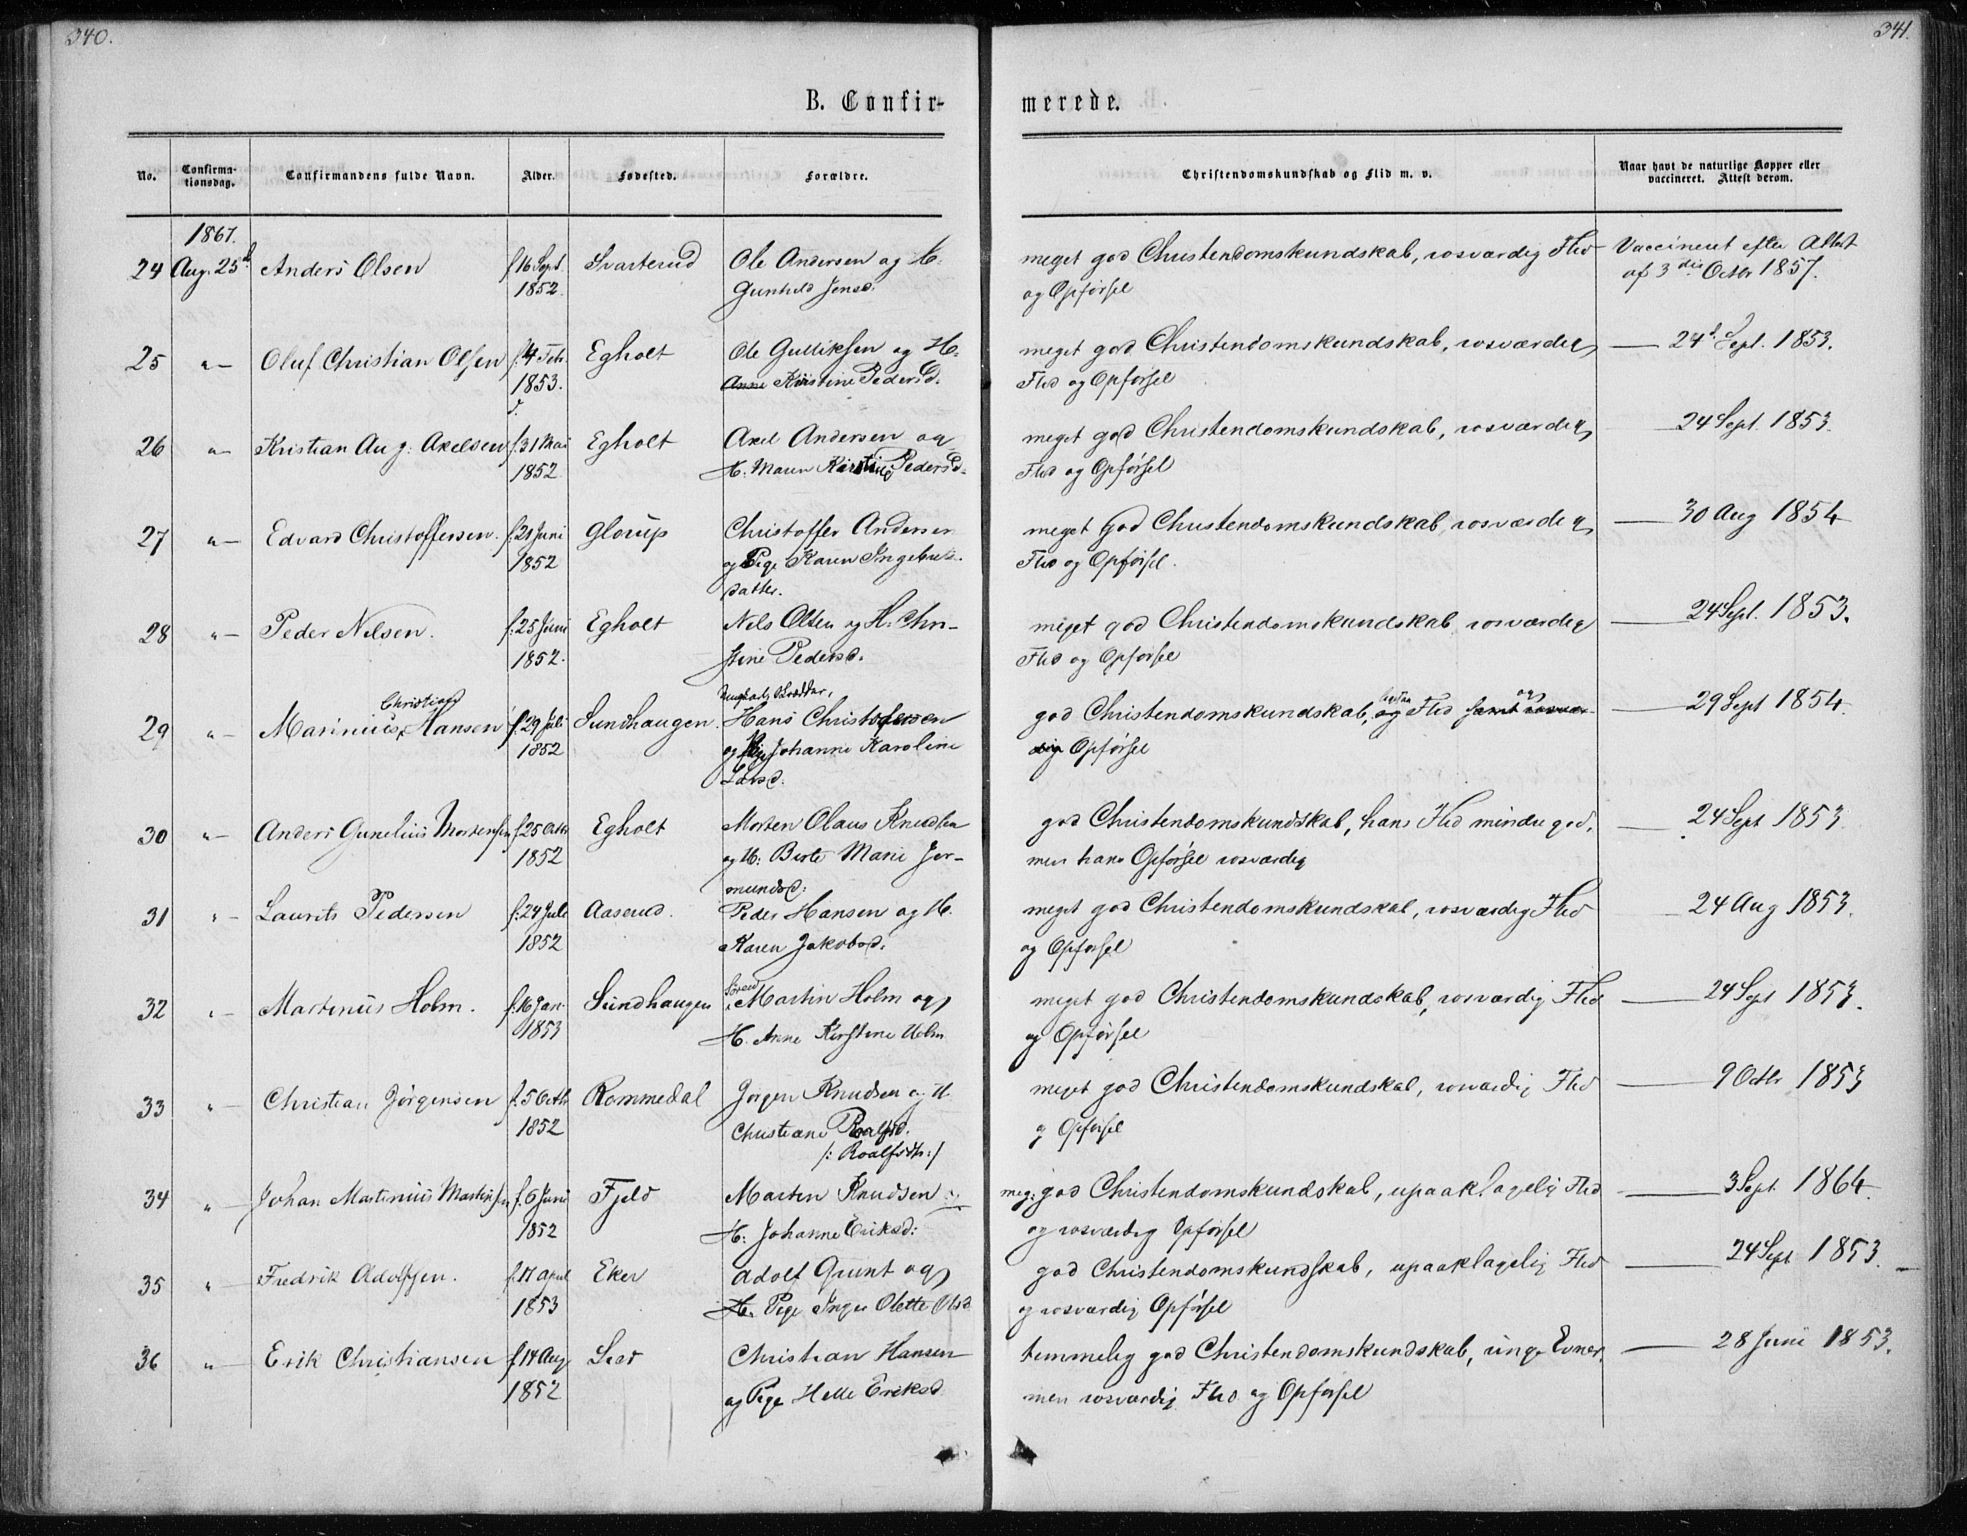 340.
341.
B. Confir-
merede.
No.
Confirma-
tionsdag.
Confirmandens fulde Navn.
Alder.
Fødested.
Forældre.
Christendomskundskab og Flid m. v.
Naar havt de naturlige Kopper eller
vaccineret. Attest derom.
1867.
24 Aug. 25d Anders Olsen f. 16 Sept. Svarterud Ole Andersen og H. meget god Christendomskundskab, rosværdig Flid Vaccineret efter Attest
1852. Gunhild Jensd. og Opførsel af 3die Octbr 1857.
25 "— Oluf Christian Olsen f. 4 Feb. Egholt Ole Gulliksen og H. meget god Christendomskundskab, rosværdig — 24d Sept. 1853.
1853. Anne Kirstine Pedersd. Flid og Opførsel
26 "— Kristian Aug. Axelsen f. 31 Mai Egholt Axel Andersen og meget god Christendomskundskab, rosværdig — 24 Sept 1853.
1852 H. Maren Kirstine Pedersd. Flid og Opførsel
27 "— Edvard Christoffersen. f. 21 Juni Glorup Christoffer Andersen meget god Christendomskundskab, rosværdig — 30 Aug 1854
1852 og Pige Karen Ingebrets- Flid og Opførsel.
datter.
28 "— Peder Nilsen. f. 25 Juni Egholt Nils Olsen og H. Chri- meget god Christendomskundskab rosværdig — 24 Sept. 1853.
1852. stine Pedersd. Flid og Opførsel
Christian Ungkarl, Skrædder,
29 "— Marinius Hansen f. 29 Juli Sundhaugen. Hans Christofersen god Christendomskundskab, og Flid samt rosvær- og — 29 Sept 1854.
1852 og Pige Johanne Karoline dig Opførsel
Larsd.
30 "— Anders Gunelius Mortensen f. 25 Octb Egholt Morten Olaus Knudsen god Christendomskundskab, hans Flid mindre god, — 24 Sept 1853
1852 og H. Berte Marie Jor- men hans Opførsel rosværdig
mundsd:
31 "— Laurits Pedersen f. 24 Juli Aaserud. Peder Hansen og H. meget god Christendomskundskab, rosværdig Flid — 24 Aug 1853.
1852 Karen Jakobsd. og Opførsel
32 "— Martinus Holm. f. 16 Jan. Sundhaugen Martin Holm og meget god Christendomskundskab, rosværdig Flid — 24 Sept 1853.
1853 H. Anne Kirstine Holm og Opførsel
33 "— Christian Jørgensen f. 5 Octb Rommedal Jørgen Knudsen og H. meget god Christendomskundskab, rosværdig Flid — 9 Octbr 1853
1852 Christiane Roalfsd. og Opførsel
/: Roalfsdtr :/
34 "— Johan Martinius Martinsen f. 6 Juni Fjeld Martin Knudsen og meg: god Christendomskundskab, upaaklagelig Flid — 3 Sept. 1864.
1852 H. Johanne Eriksd: og rosværdig Opførsel
35 "— Fredrik Adolfsen. f. 17 April Eker Adolf Qvint og god Christendomskundskab, upaaklagelig Flid — 24 Sept 1853.
1853 H. Pige Inger Olette Olsd og rosværdig Opførsel
36 "— Erik Christiansen f. 14 Aug. Lier Christian Hansen temmelig god Christendomskundskab, ringe Evner, — 28 Juni 1853.
1852 og Pige Helle Eriksd. men rosværdig Flid og Opførsel